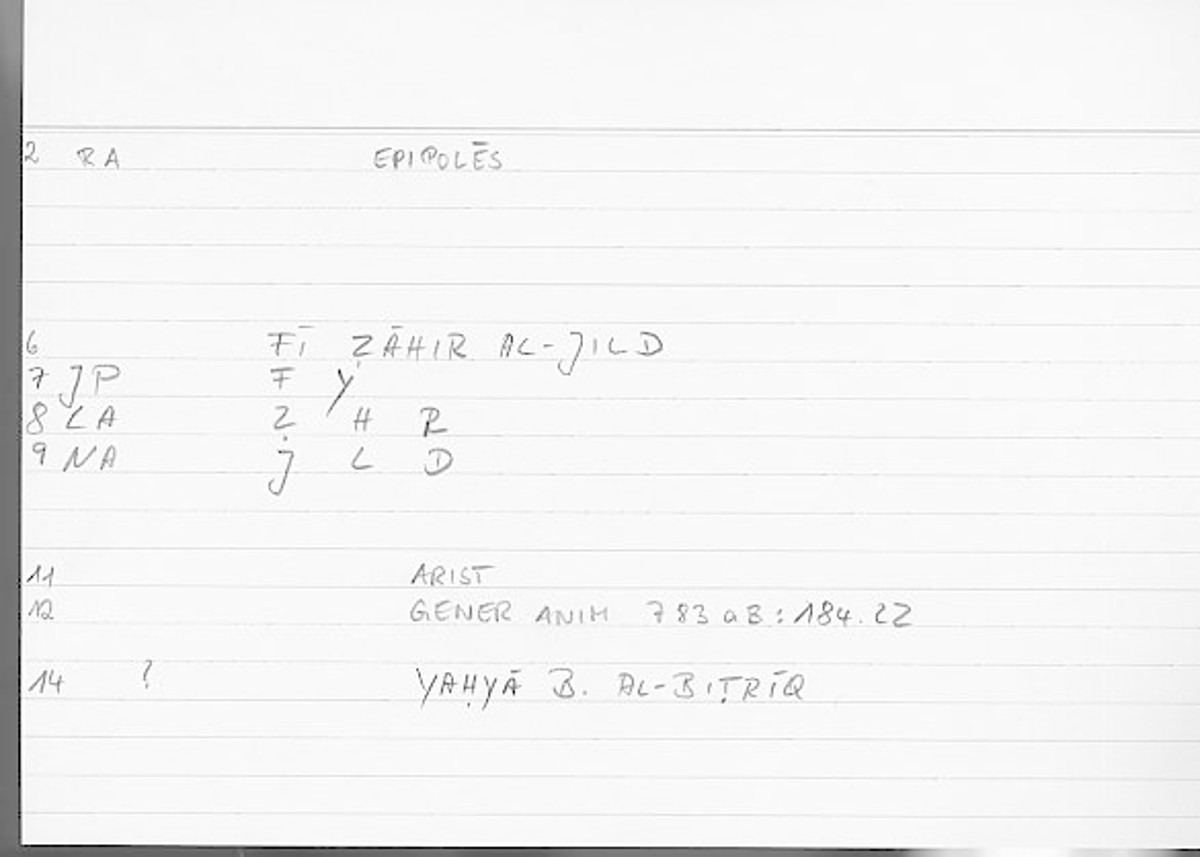 2 RA EPIPOLĒS
6 FĪ ẒĀHIR AL-JILD
7 JP F Y
8 LA Ẓ H R
9 NA J L D
11 ARIST
12 GENER ANIM 783 a 8 : 184.22
14 ? YAḤYĀ B. AL-BIṬRĪQ